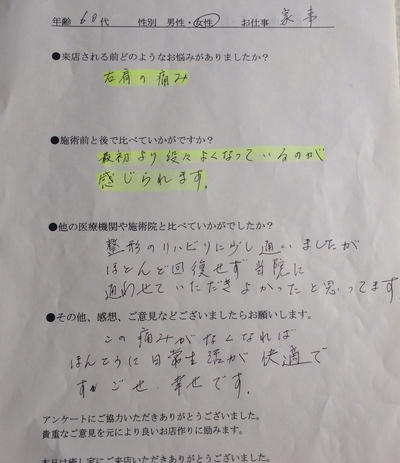 年齢 60代 性別 男性・女性 お仕事 家事
●来店される前どのようなお悩みがありましたか?
右肩の痛み
●施術前と後で比べていかがですか?
最初より段々よくなっているのが
感じられます。
●他の医療機関や施術院と比べていかがでしたか?
整形のリハビリに少し通いましたが
ほとんど回復せず当院に
通わせていただきよかったと思ってます
●その他、感想、ご意見などございましたらお願いします。
この痛みがなくなれば
ほんとうに日常生活が快適で
すごせ幸せです。
アンケートにご協力いただきありがとうございました。
貴重なご意見を元により良いお店作りに励みます。
本日は癒し家にご来店いただきありがとうございました